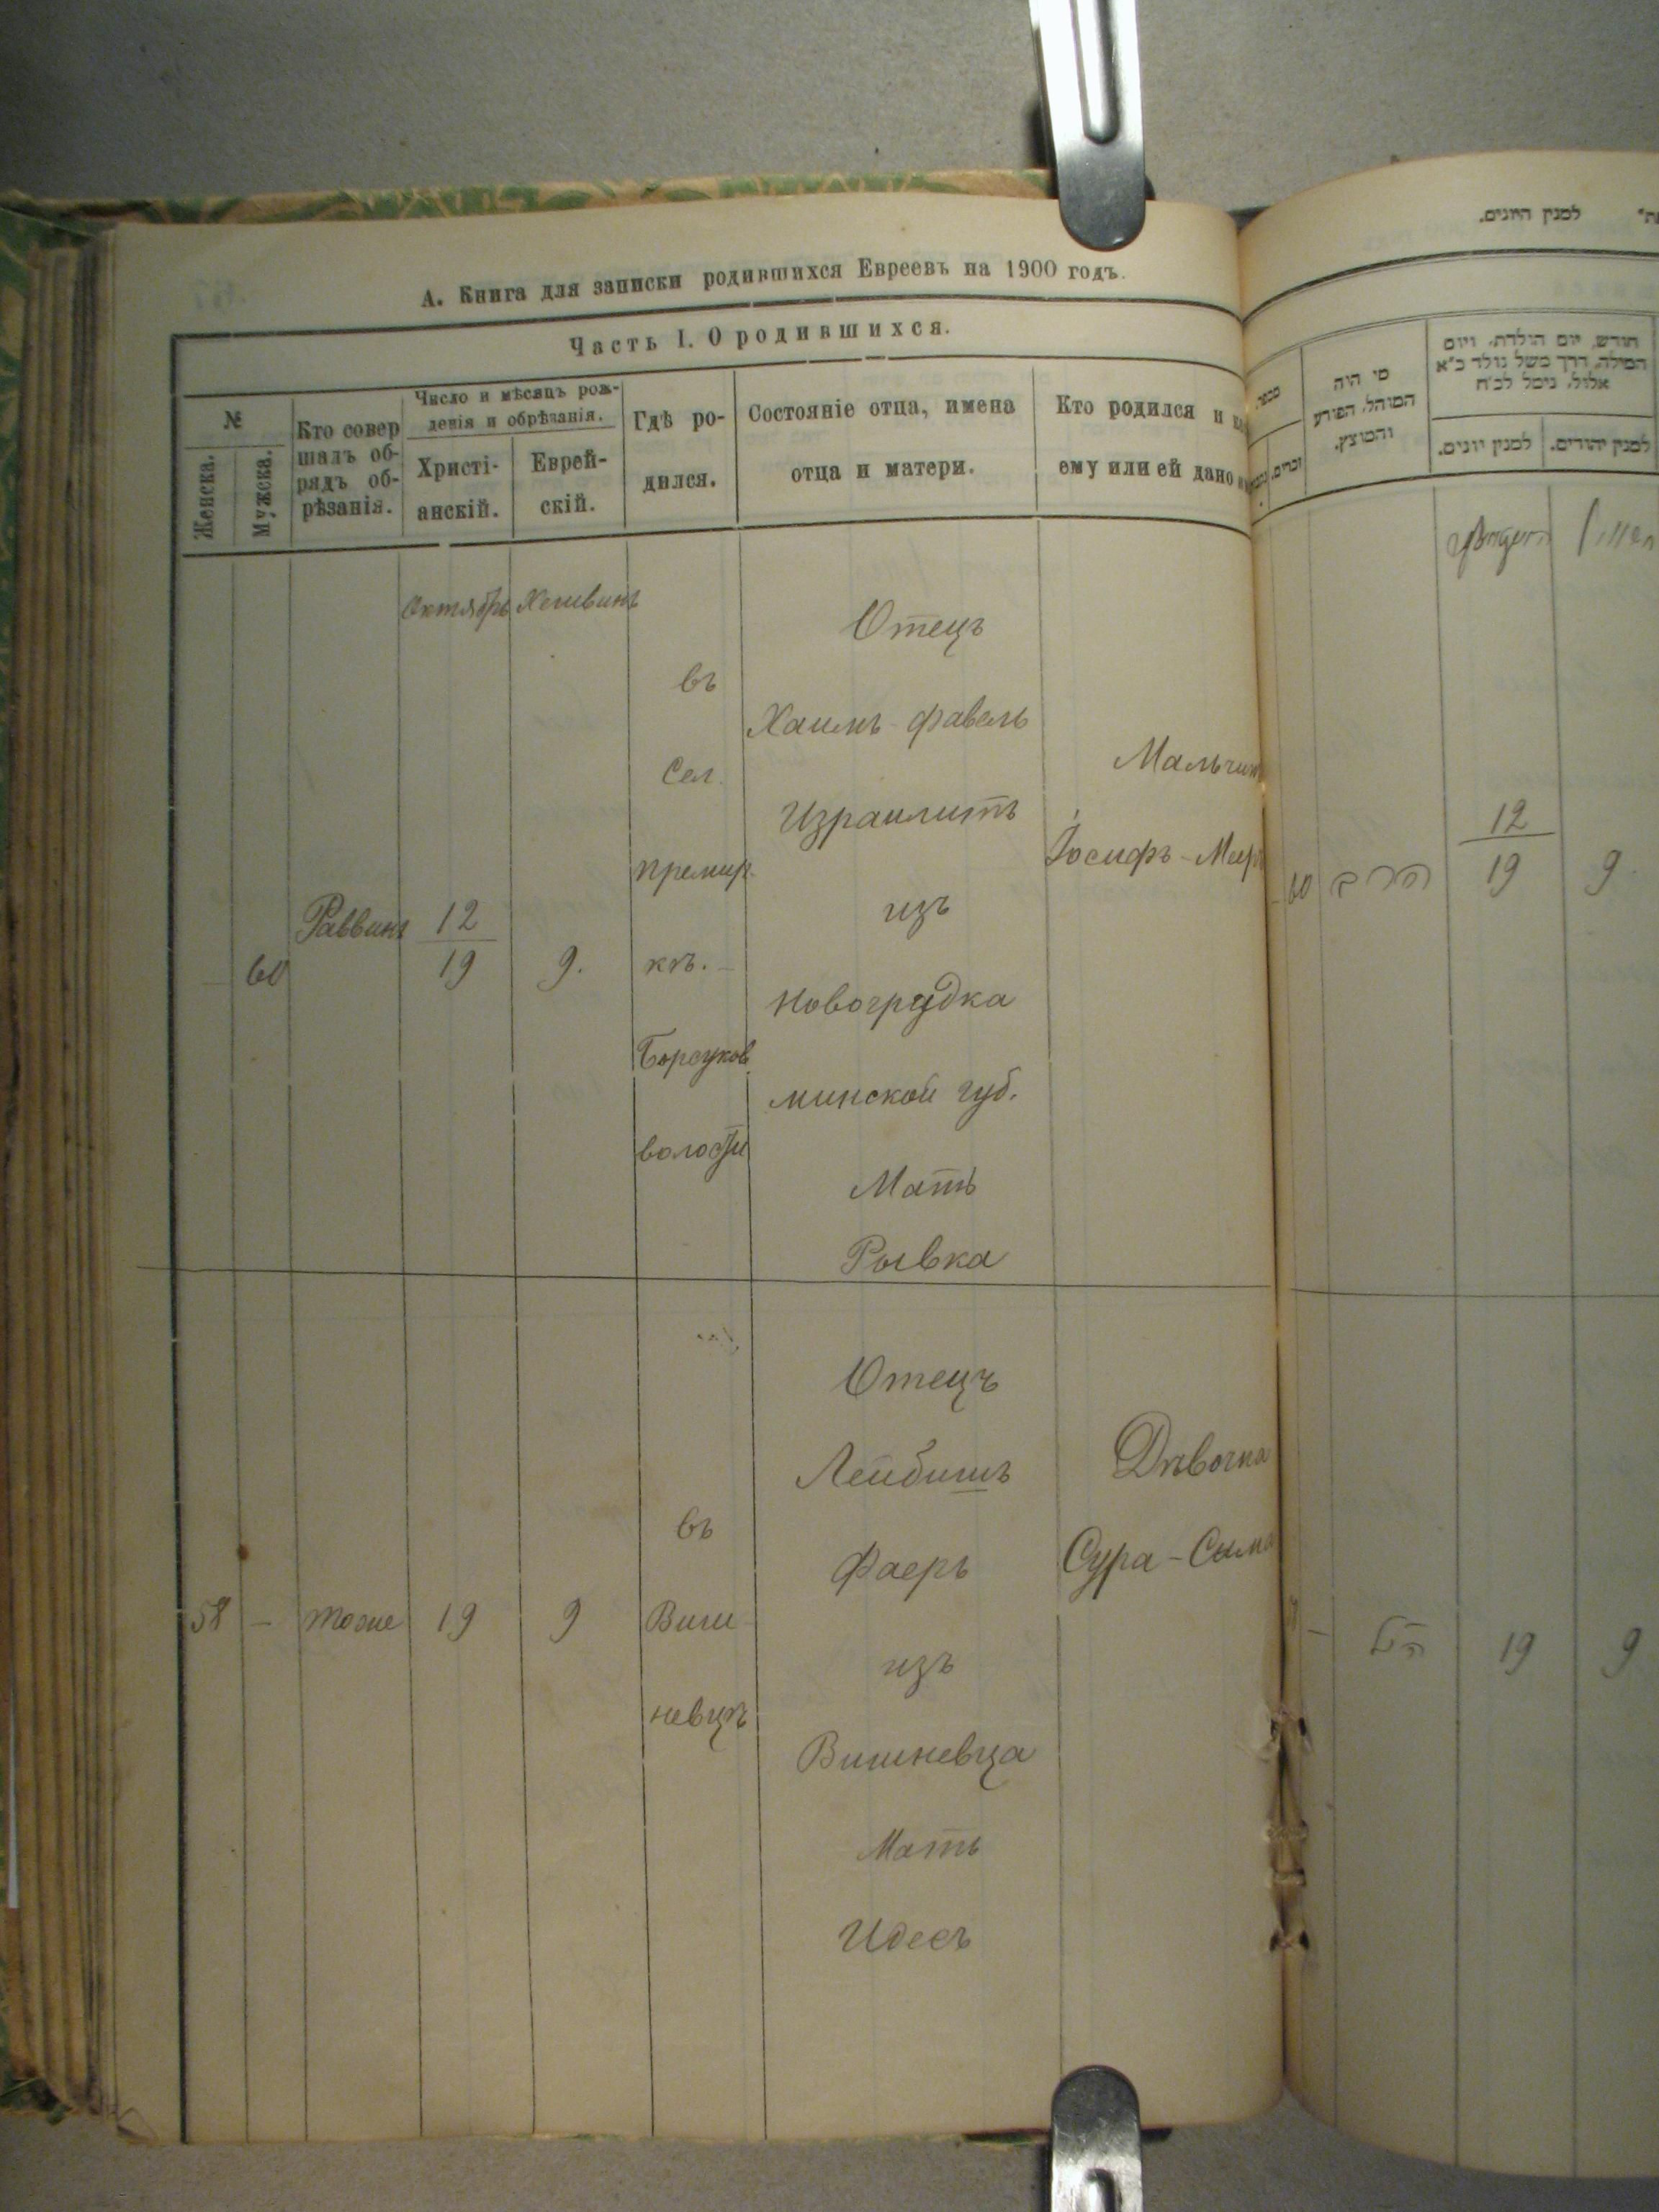 А. Книга для записки родившихся Евреевъ на 1900 годъ.
Часть I. О родившихся.
№
Женска.
Мужска.
Кто совер
шалъ об-
рядъ об-
рѣзанія.
Число и мѣсяцъ рож-
денія и обрѣзанія.
Христі-
анскій.
Еврей-
скій.
Гдѣ ро-
дился.
Состояніе отца, имена
отца и матери.
Кто родился и
ему или ей дано
Октябрь
Хешвинъ
60
Раввинъ
12
19
9.
въ
Сел.
Премир-
кѣ.
Борсуков.
волости
Отецъ
Хаимъ-Фавель
Израилитъ
изъ
Новогрудка
минской губ.
Мать
Рывка
Мальчик
Іосифъ-Меер
58
—
тоже
19
9
въ
Виш-
невцѣ
Отецъ
Лейбишъ
Фаеръ
изъ
Вишневца
Мать
Идесъ
Дѣвочка
Сура-Сыма
למנין היונים.
מי היה
המוהל, הפורע
והמוצץ.
חודש, יום הולדת, ויום
המילה, דרך משל נולד כ״א
אלול, נימל לכ״ח
למנין יונים.
למנין יהודים.
60
הרב
12
19
9.
—
הנ״ל
19
9